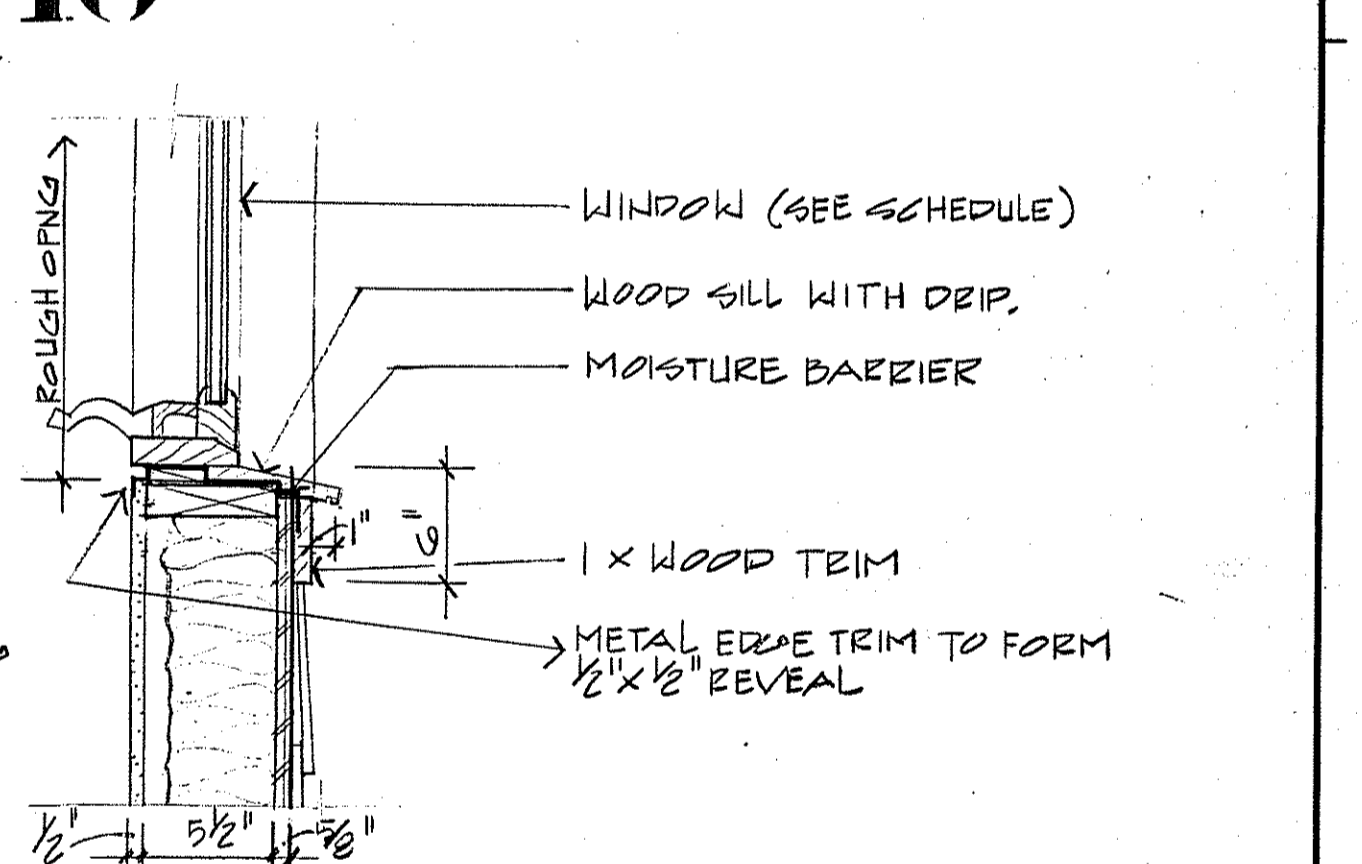 10
ROUGH OPNG
WINDOW (SEE SCHEDULE)
WOOD SILL WITH DRIP.
MOISTURE BARRIER
1"
1 X WOOD TRIM
METAL EDGE TRIM TO FORM
1/2" X 1/2" REVEAL
1/2"
5 1/2"
5/8"